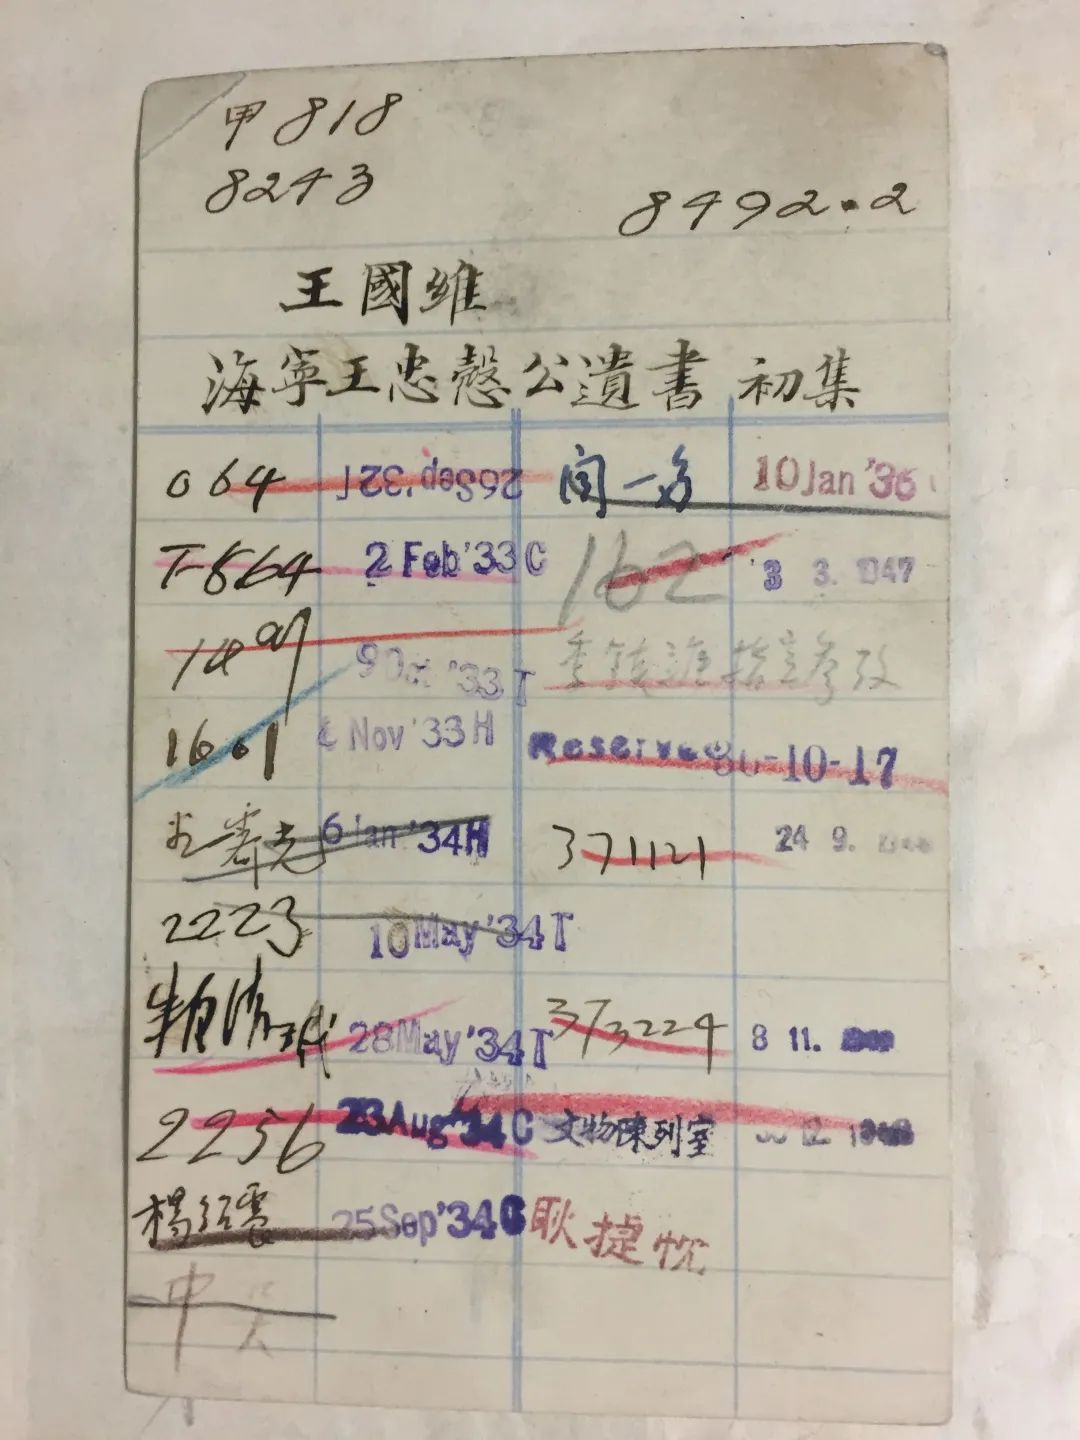 甲818
8243
8492.2
王國維
海寧王忠慤公遺書 初集
064 26Sep'32J 聞一多 10Jan'36
T-564 2 Feb'33C 162 3 3. 1947
1497 9 Oct '33T 指定參攷
1601 Nov'33H Reserve -10-17
6 Jan '34H 371121 24 9.
2223 10May'34T
28May'34T 373224 8 11.
2256 23Aug'34C 文物陳列室 12
楊紹震 25Sep'34C 耿捷忱
中